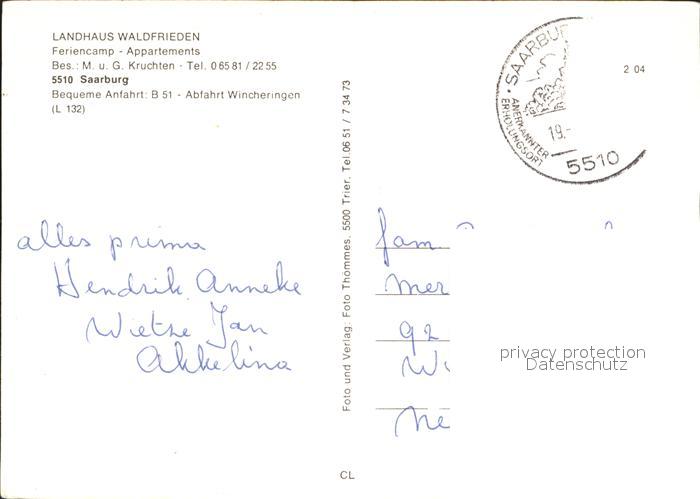 LANDHAUS WALDFRIEDEN
Feriencamp - Appartements
Bes.: M. u. G. Kruchten - Tel. 0 65 81 / 22 55
5510 Saarburg
Bequeme Anfahrt: B 51 - Abfahrt Wincheringen
(L 132)
alles prima
Hendrik Anneke
Wietze Jan
Akkelina
Foto und Verlag: Foto Thommes, 5500 Trier, Tel. 06 51 / 7 34 73
CL
SAARBU
ANERKANNTER
ERHOLUNGSORT
19.-
5510
2 04
fam
mer
92
privacy protection
Datenschutz